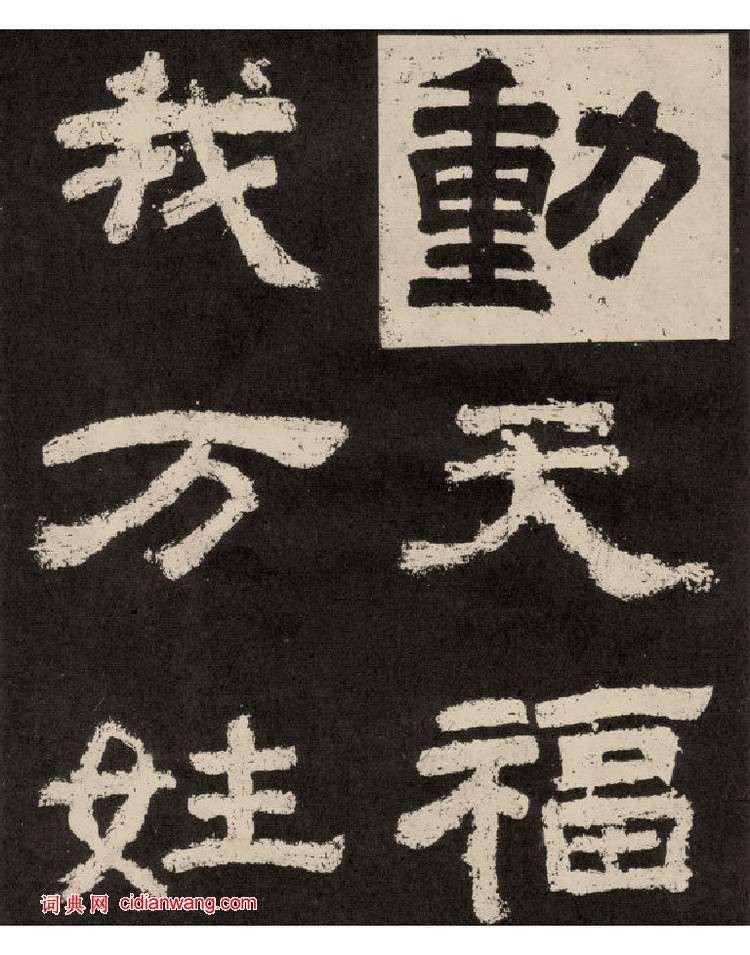 動天福
我万姓
词典网 cidianwang.com